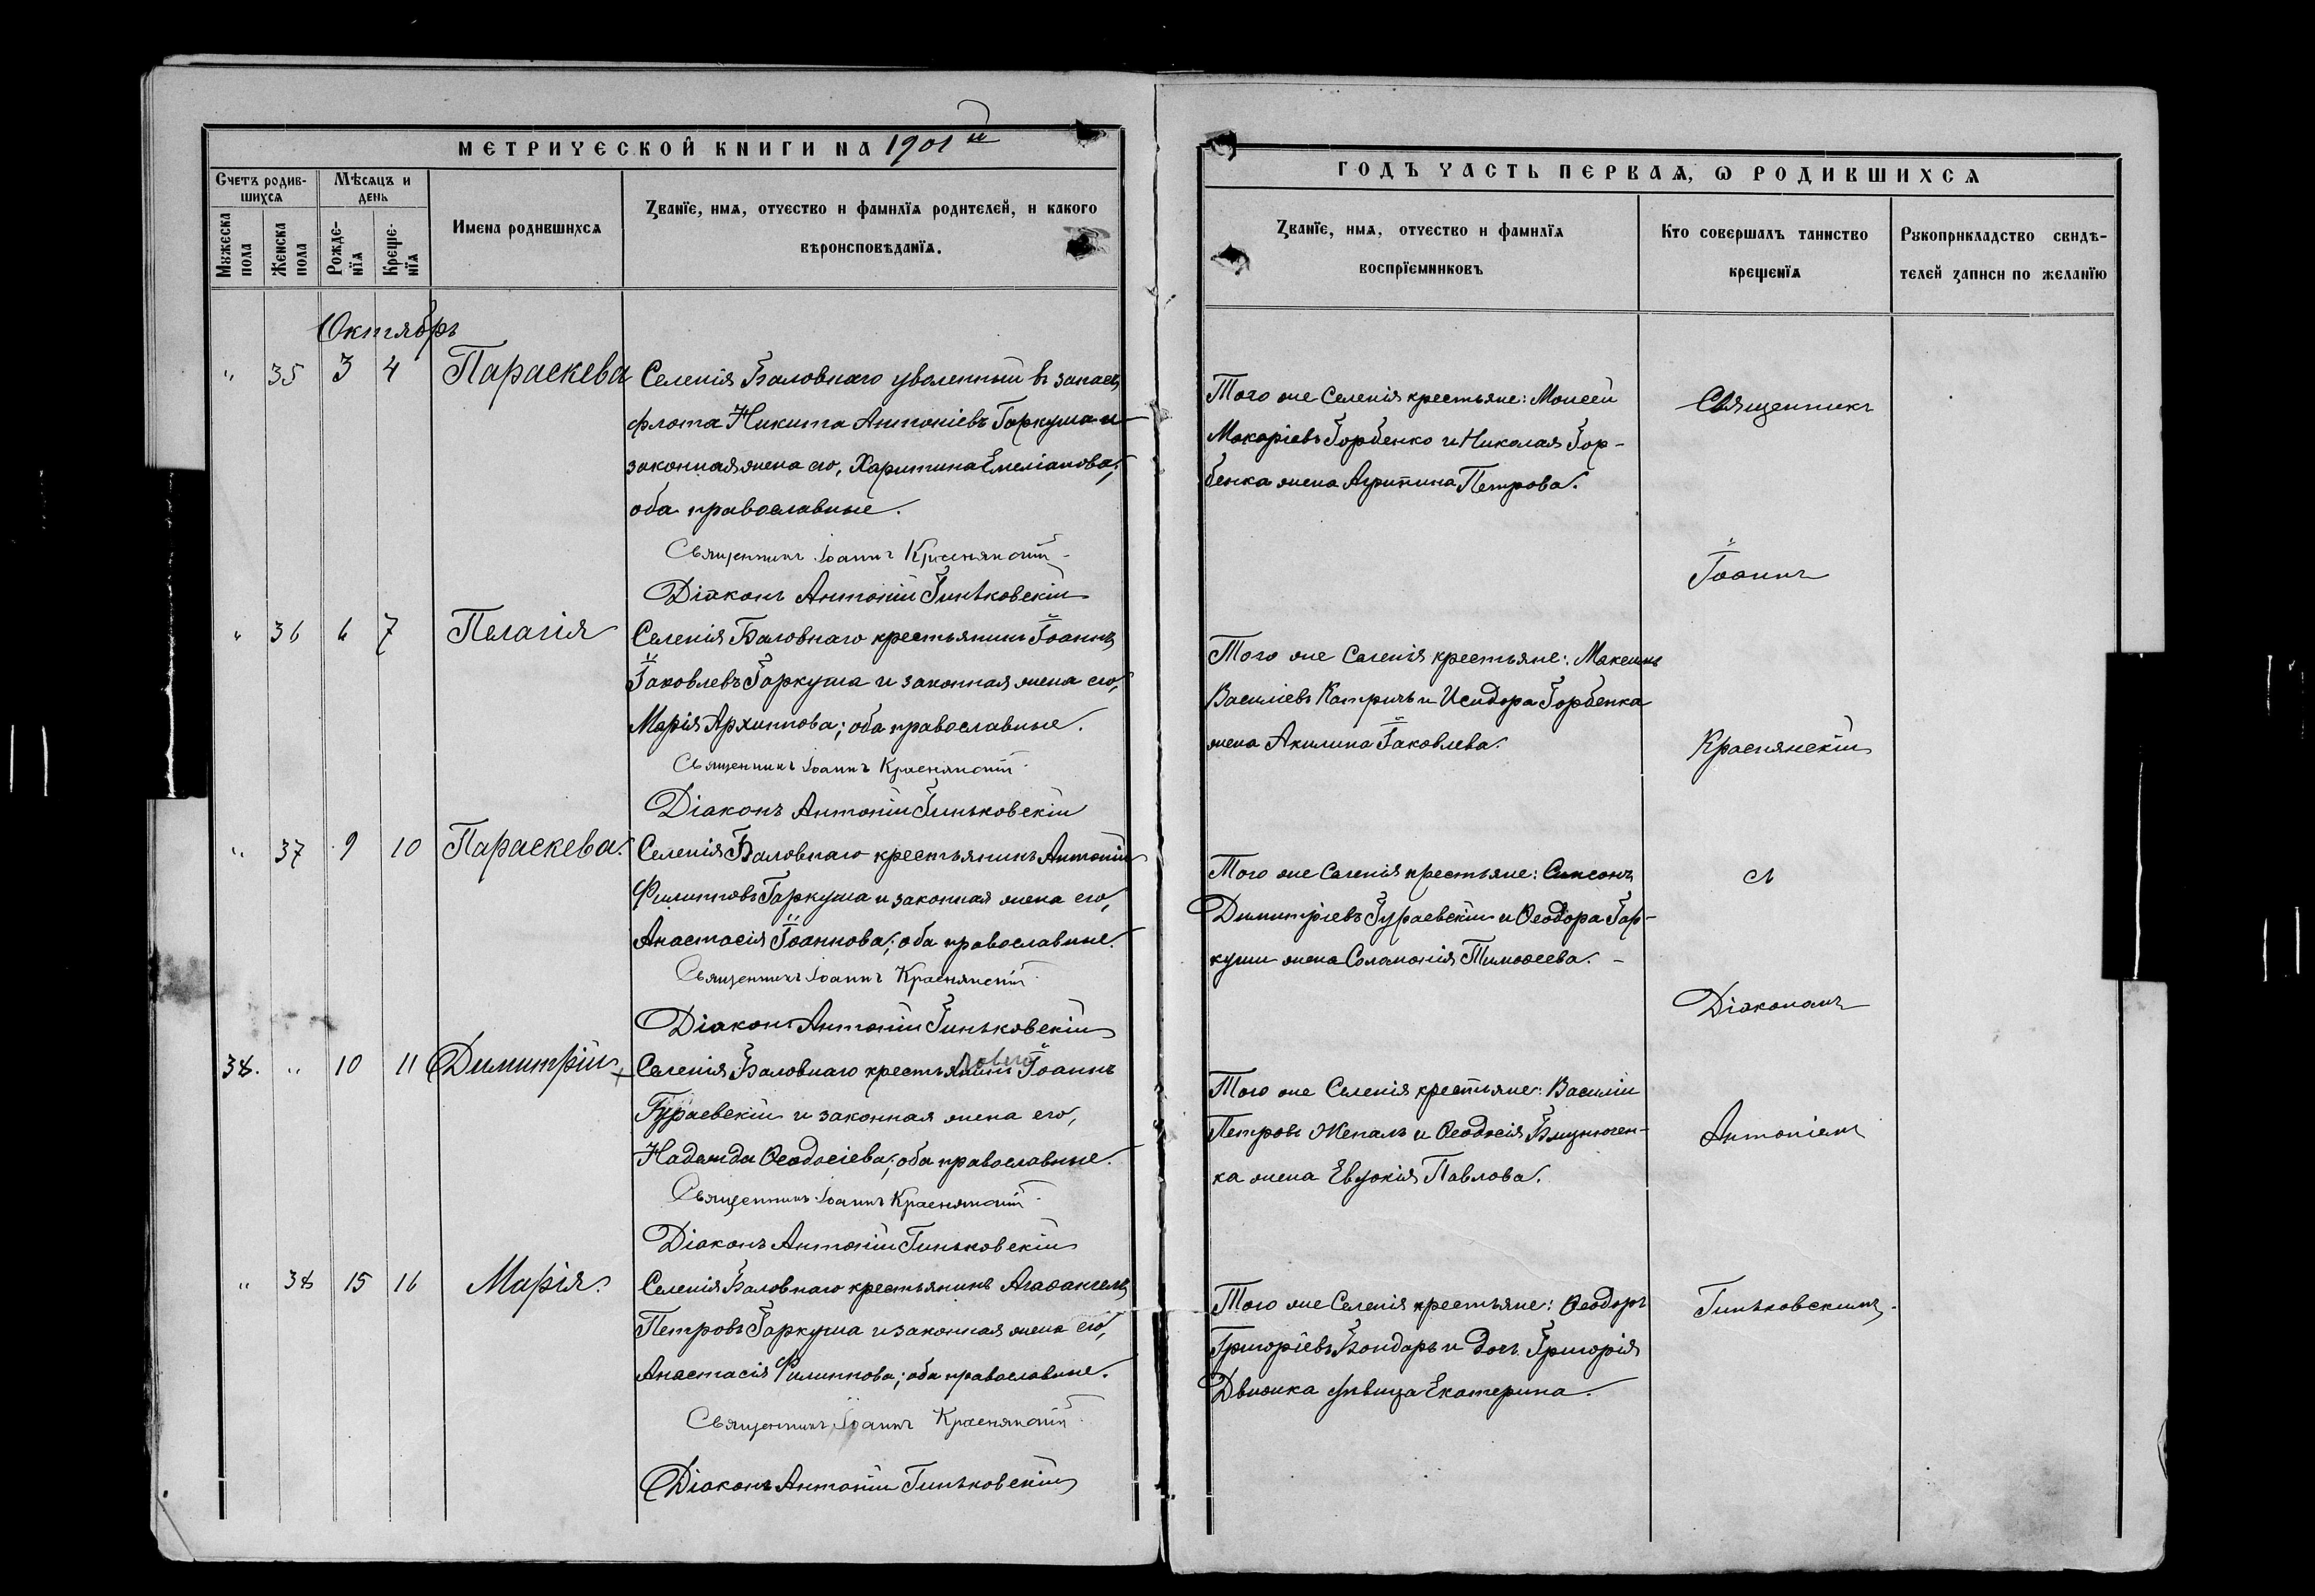 МЕТРИЧЕСКОЙ КНИГИ НА 1901й
Счетъ родив-
шихся
Мѣсяцъ и
день
Мужеска
пола
Женска
пола
Рожде-
нїя
Креще-
нїя
Имена родившихся
Званїе, имя, отчество и фамилїя родителей, и какого
вѣроисповѣданїя.
Октябрь
" 35 3 4 Параскева Селенія Баловнаго уволенный въ запасъ
флота Никита Антоніевъ Гаркуша и
законная жена его, Харитина Емеліанова;
оба православные.
Священникъ Іоаннъ Краснянскій
Діаконъ Антоній Гиньковскій
" 36 6 7 Пелагія Селенія Баловнаго крестьянинъ Іоаннъ
Іаковлевъ Гаркуша и законная жена его,
Марія Архиппова; оба православные.
Священникъ Іоаннъ Краснянскій
Діаконъ Антоній Гиньковскій
" 37 9 10 Параскева. Селенія Баловнаго крестьянинъ Антоній
Филипповъ Гаркуша и законная жена его,
Анастасія Іоаннова; оба православные.
Священникъ Іоаннъ Краснянскій
Діаконъ Антоній Гиньковскій
38. " 10 11 Димитрій Селенія Баловнаго крестьянинъ Іоаннъ
Гураевскій и законная жена его,
Надежда Ѳеодосіева; оба православные.
Священникъ Іоаннъ Краснянскій
Діаконъ Антоній Гиньковскій
" 38 15 16 Марія. Селенія Баловнаго крестьянинъ Агаѳангелъ
Петровъ Гаркуша и законная жена его,
Анастасія Филиппова; оба православные.
Священникъ Іоаннъ Краснянскій
Діаконъ Антоній Гиньковскій
ГОДЪ ЧАСТЬ ПЕРВАЯ, Ѡ РОДИВШИХСЯ
Званїе, имя, отчество и фамилїя
воспрїемниковъ
Кто совершалъ таинство
крещенїя
Рукоприкладство свидѣ-
телей записи по желанїю
Того же Селенія крестьяне: Моисей
Макаріевъ Горбенко и Николая Гор-
бенка жена Агрипина Петрова.
Того же Селенія крестьяне: Максимъ
Василіевъ Катричъ и Исидора Горбенка
жена Акилина Іаковлева.
Того же Селенія крестьяне: Симеонъ
Димитріевъ Гураевскій и Ѳеодора Гар-
куши жена Соломонія Тимоѳеева.
Того же Селенія крестьяне: Василій
Петровъ и Ѳеодосія
ка жена Евдокія Павлова.
Того же Селенія крестьяне: Ѳеодоръ
Григоріевъ Бондарь и дочь Григорія
Движка дѣвица Екатерина.
Священникъ
Іоаннъ
Краснянскій
съ
Діакономъ
Антоніемъ
Гиньковскимъ.